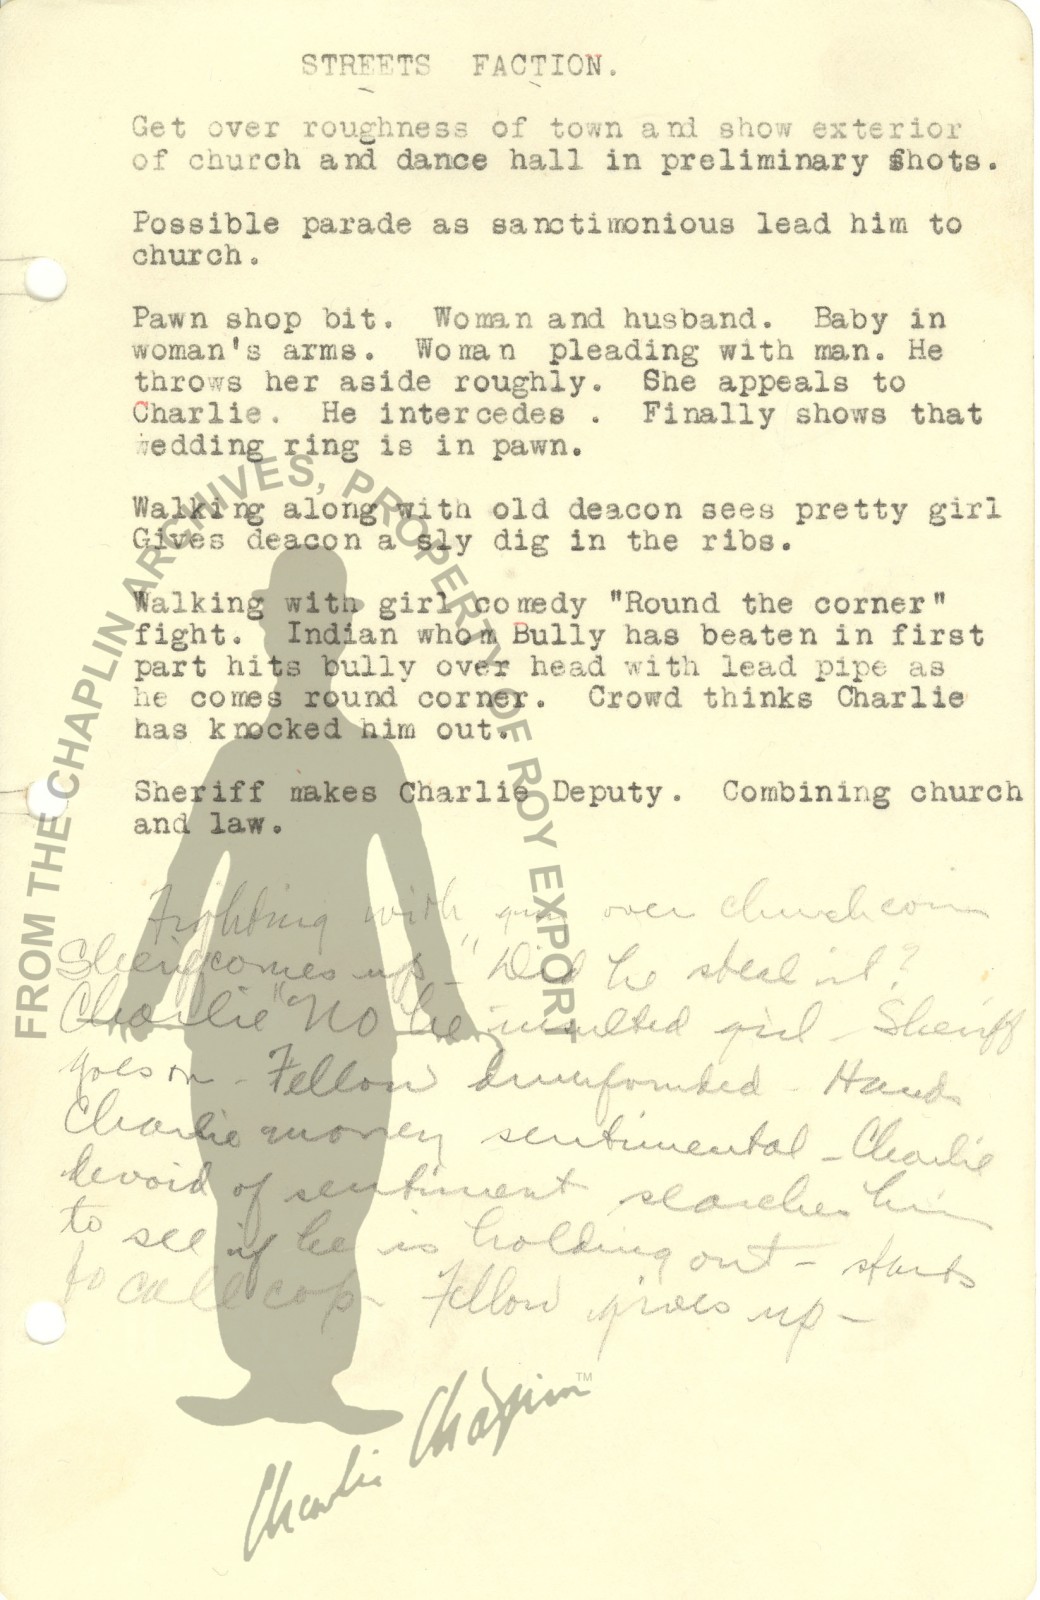 STREETS FACTION.
Get over roughness of town and show exterior
of church and dance hall in preliminary shots.
Possible parade as sanctimonious lead him to
church.
Pawn shop bit. Woman and husband. Baby in
woman's arms. Woman pleading with man. He
throws her aside roughly. She appeals to
Charlie. He intercedes . Finally shows that
wedding ring is in pawn.
Walking along with old deacon sees pretty girl
Gives deacon a sly dig in the ribs.
Walking with girl comedy "Round the corner"
fight. Indian whom Bully has beaten in first
part hits bully over head with lead pipe as
he comes round corner. Crowd thinks Charlie
has knocked him out.
Sheriff makes Charlie Deputy. Combining church
and law.
Fighting with over church coin
Sheriff comes up - "Did he steal it?
Charlie "No he insulted girl - Sheriff
goes on - Fellow dumfounded - Hands
Charlie money sentimental - Charlie
devoid of sentiment searches him
to see if he is holding out - starts
to call cop - Fellow gives up -
Charlie Chaplin™
FROM THE CHAPLIN ARCHIVES, PROPERTY OF ROY EXPORT